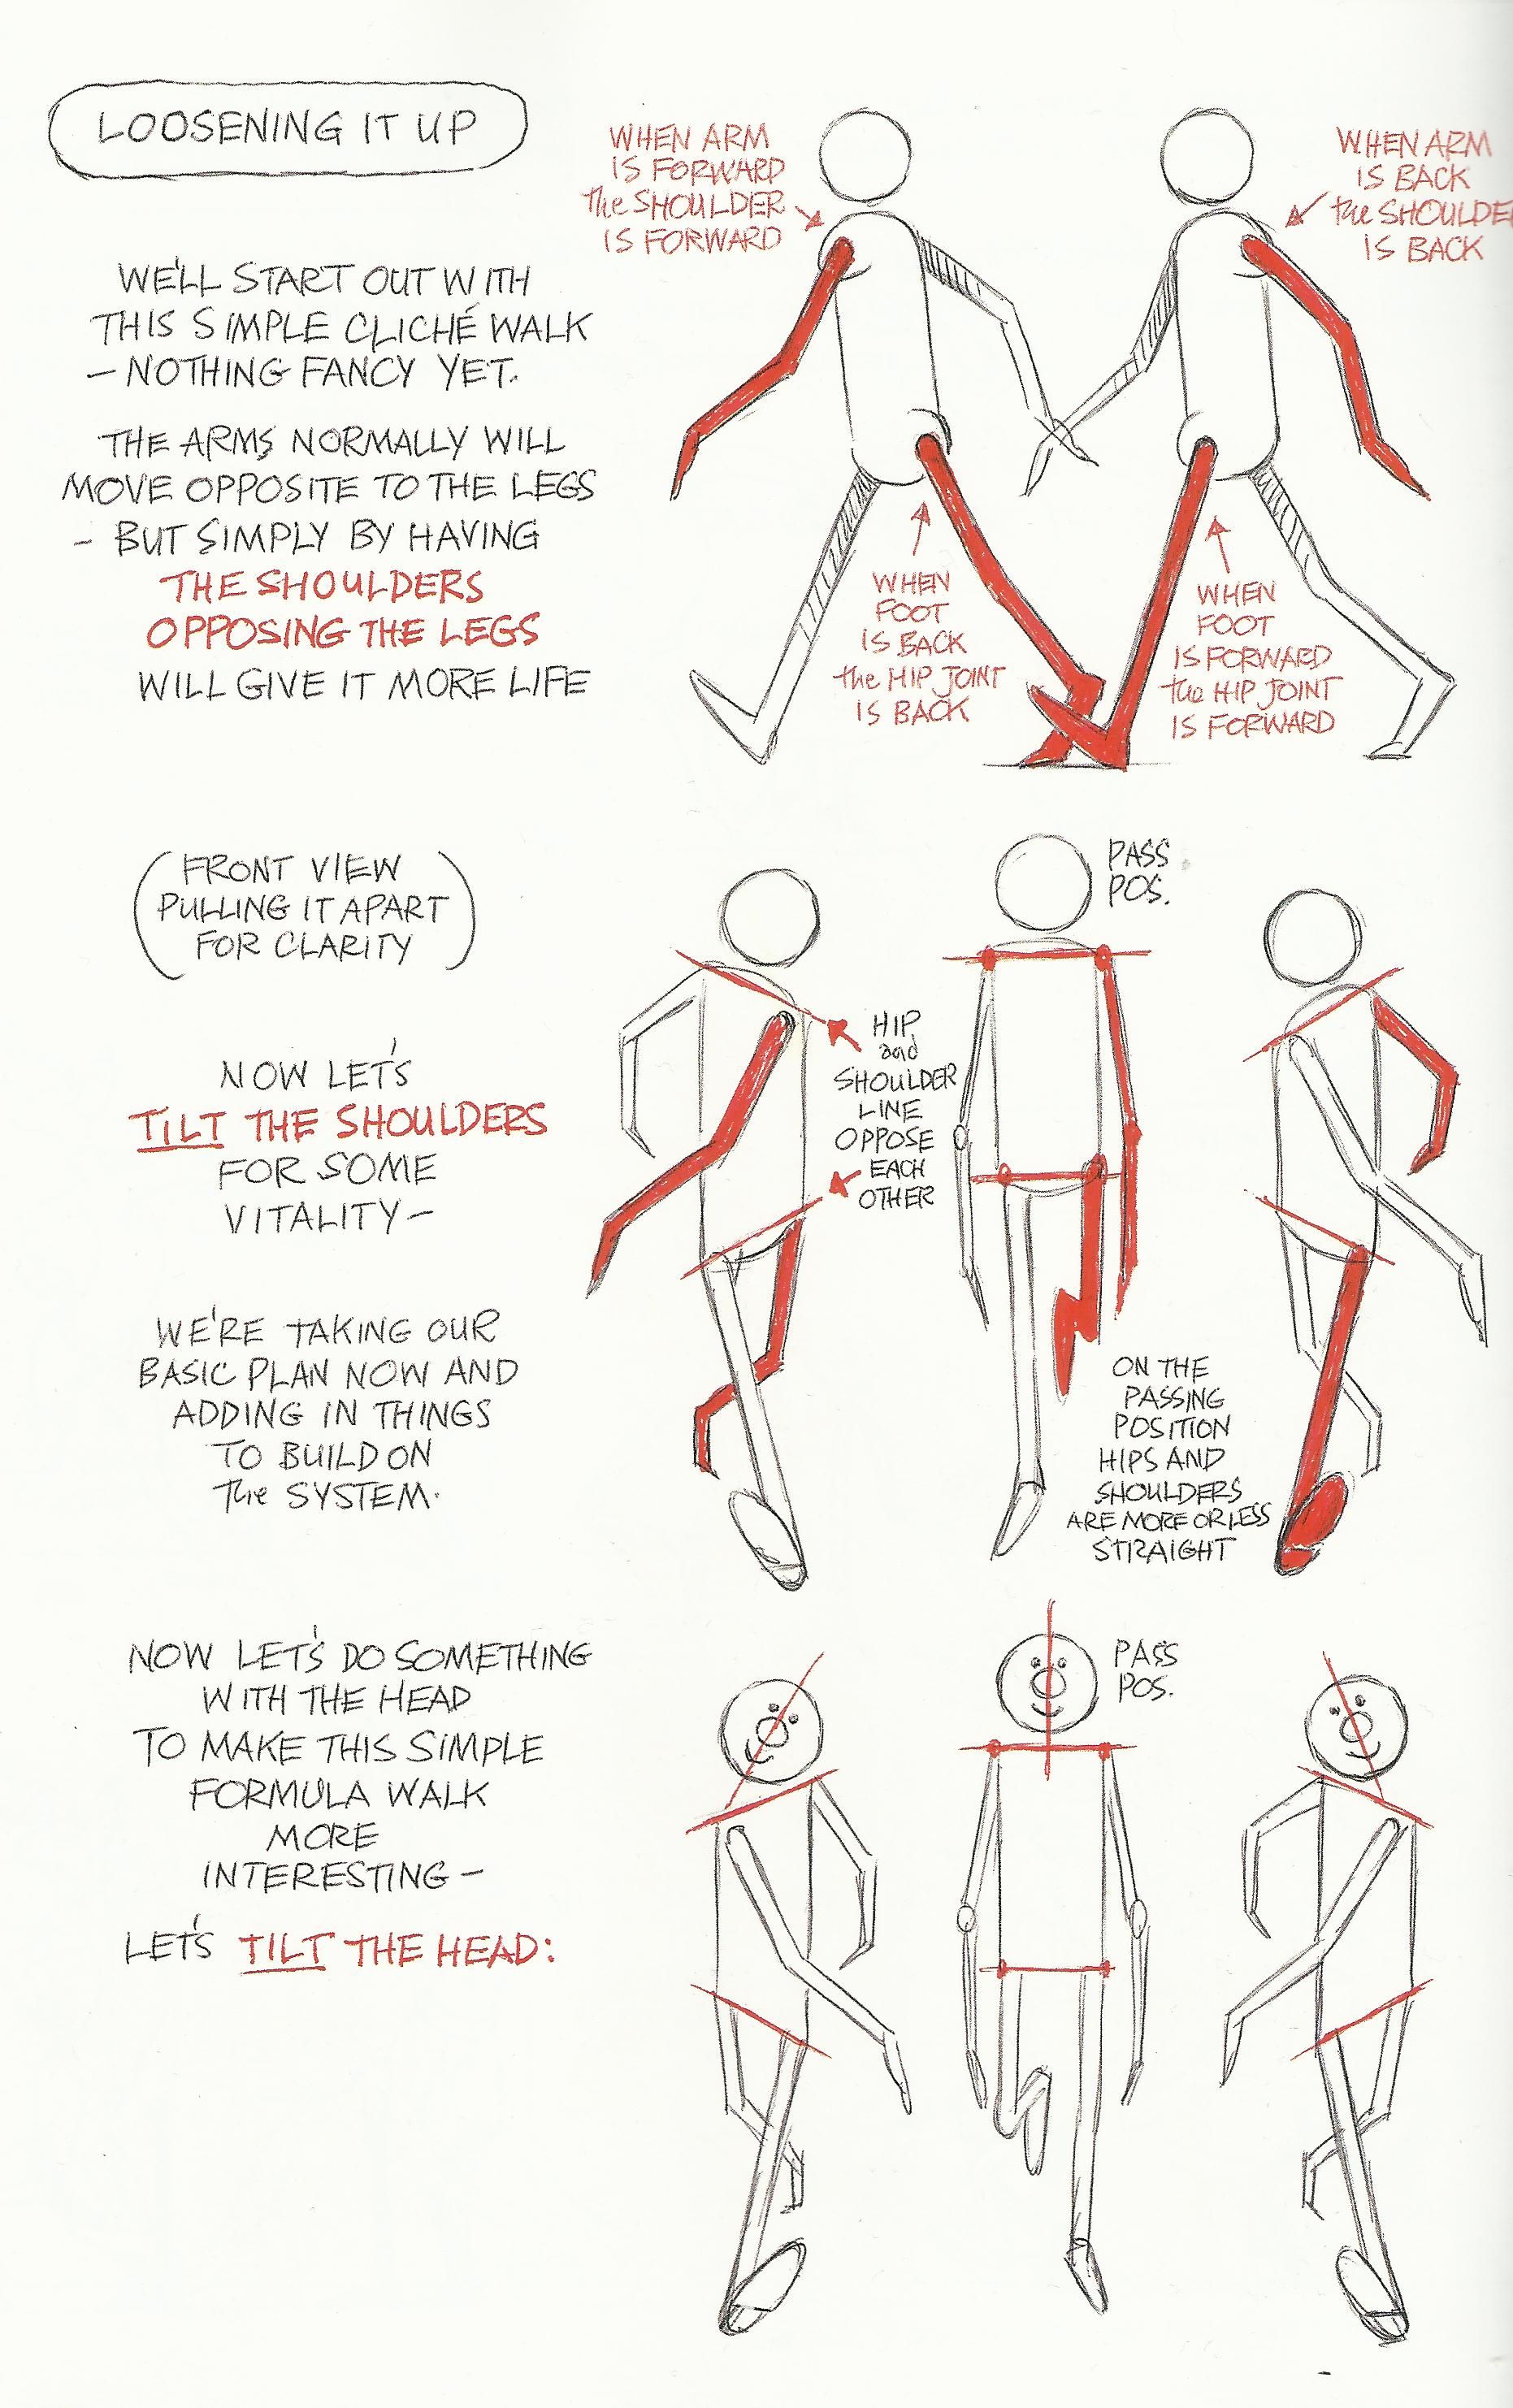 LOOSENING IT UP
WE'LL START OUT WITH
THIS SIMPLE CLICHÉ WALK
— NOTHING FANCY YET.
THE ARMS NORMALLY WILL
MOVE OPPOSITE TO THE LEGS
- BUT SIMPLY BY HAVING
THE SHOULDERS
OPPOSING THE LEGS
WILL GIVE IT MORE LIFE
WHEN ARM
IS FORWARD
the SHOULDER
IS FORWARD
WHEN ARM
IS BACK
the SHOULDER
IS BACK
WHEN
FOOT
IS BACK
the HIP JOINT
IS BACK
WHEN
FOOT
IS FORWARD
the HIP JOINT
IS FORWARD
(FRONT VIEW
PULLING IT APART
FOR CLARITY)
NOW LET'S
TILT THE SHOULDERS
FOR SOME
VITALITY —
WE'RE TAKING OUR
BASIC PLAN NOW AND
ADDING IN THINGS
TO BUILD ON
the SYSTEM.
HIP
and
SHOULDER
LINE
OPPOSE
EACH
OTHER
PASS
POS.
ON THE
PASSING
POSITION
HIPS AND
SHOULDERS
ARE MORE OR LESS
STRAIGHT
NOW LET'S DO SOMETHING
WITH THE HEAD
TO MAKE THIS SIMPLE
FORMULA WALK
MORE
INTERESTING —
LET'S TILT THE HEAD:
PASS
POS.